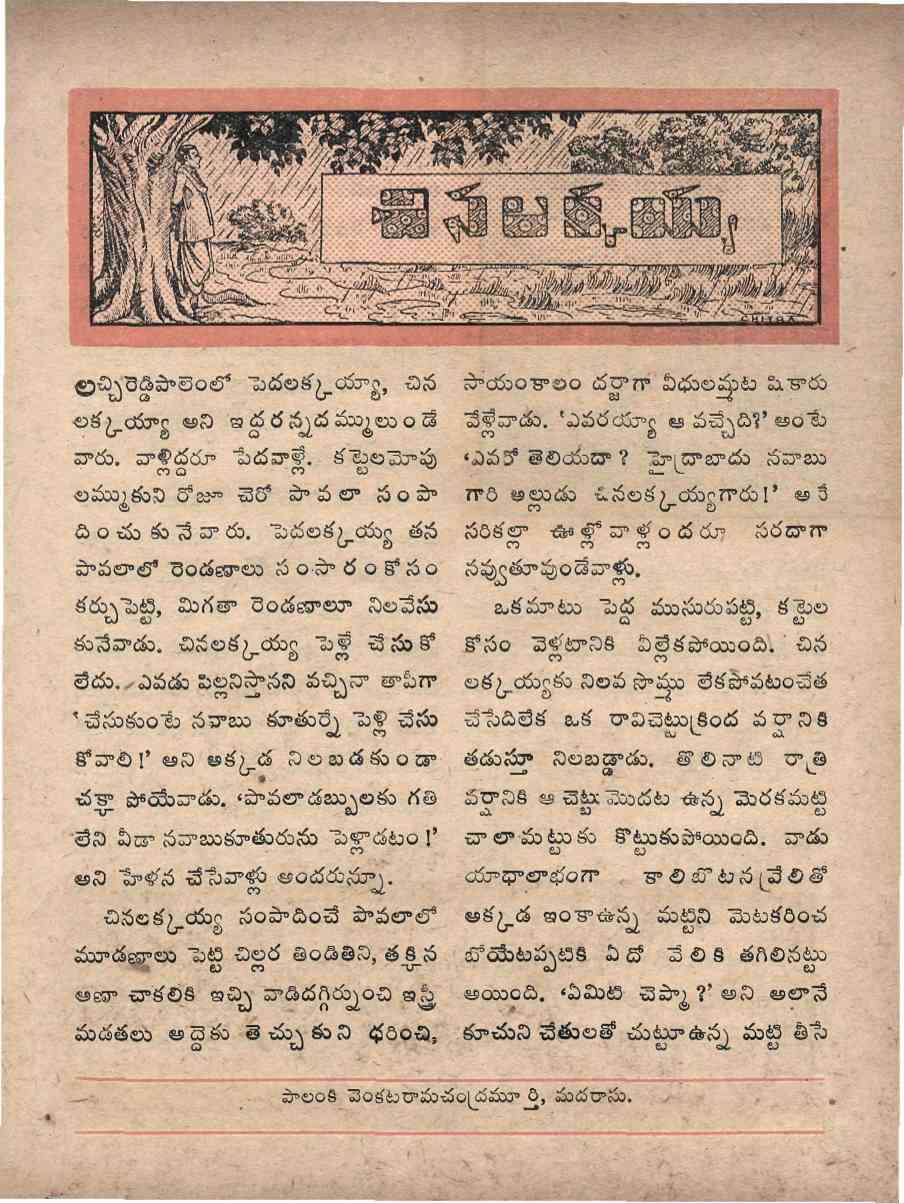 చినలక్కయ్య
CHITRA
లచ్చిరెడ్డిపాలెంలో పెదలక్కయ్యా, చిన
లక్కయ్యా అని ఇద్దరన్నదమ్ములుండే
వారు. వాళ్లిద్దరూ పేదవాళ్లే. కట్టెలమోపు
లమ్ముకుని రోజూ చెరో పావలా సంపా
దించుకునేవారు. పెదలక్కయ్య తన
పావలాలో రెండణాలు సంసారంకోసం
కర్చుపెట్టి, మిగతా రెండణాలూ నిలవేసు
కునేవాడు. చినలక్కయ్య పెళ్లే చేసుకో
లేదు. ఎవడు పిల్లనిస్తానని వచ్చినా తాపీగా
‘చేసుకుంటే నవాబు కూతుర్నే పెళ్లి చేసు
కోవాలి!’ అని అక్కడ నిలబడకుండా
చక్కా పోయేవాడు. ‘పావలాడబ్బులకు గతి
లేని వీడా నవాబుకూతురును పెళ్లాడటం!’
అని హేళన చేసేవాళ్లు అందరున్నూ.
చినలక్కయ్య సంపాదించే పావలాలో
మూడణాలు పెట్టి చిల్లర తిండితిని, తక్కిన
అణా చాకలికి ఇచ్చి వాడిదగ్గిర్నుంచి ఇస్త్రీ
మడతలు అద్దెకు తెచ్చుకుని ధరించి,
సాయంకాలం దర్జాగా వీధులమ్మట షికారు
వేళ్లేవాడు. ‘ఎవరయ్యా ఆ వచ్చేది?’ అంటే
‘ఎవరో తెలియదా? హైద్రాబాదు నవాబు
గారి అల్లుడు చినలక్కయ్యగారు!’ అనే
సరికల్లా ఊళ్లోవాళ్లందరూ సరదాగా
నవ్వుతూవుండేవాళ్లు.
ఒకమాటు పెద్ద ముసురుపట్టి, కట్టెల
కోసం వెళ్లటానికి వీల్లేకపోయింది. చిన
లక్కయ్యకు నిలవ సొమ్ము లేకపోవటంచేత
చేసేదిలేక ఒక రావిచెట్టుక్రింద వర్షానికి
తడుస్తూ నిలబడ్డాడు. తొలినాటి రాత్రి
వర్షానికి ఆ చెట్టు మొదట ఉన్న మెరకమట్టి
చాలామట్టుకు కొట్టుకుపోయింది. వాడు
యాధాలాభంగా కాలిబొటనవ్రేలితో
అక్కడ ఇంకాఉన్న మట్టిని మెటకరించ
బోయేటప్పటికి ఏదో వేలికి తగిలినట్టు
అయింది. ‘ఏమిటి చెప్మా?’ అని అలానే
కూచుని చేతులతో చుట్టూఉన్న మట్టి తీసే
పాలంకి వెంకటరామచంద్రమూర్తి, మదరాసు.